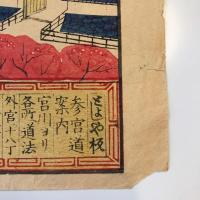 とよや板
参宮道
案内
宮川ヨリ
各所道法
外宮十八丁